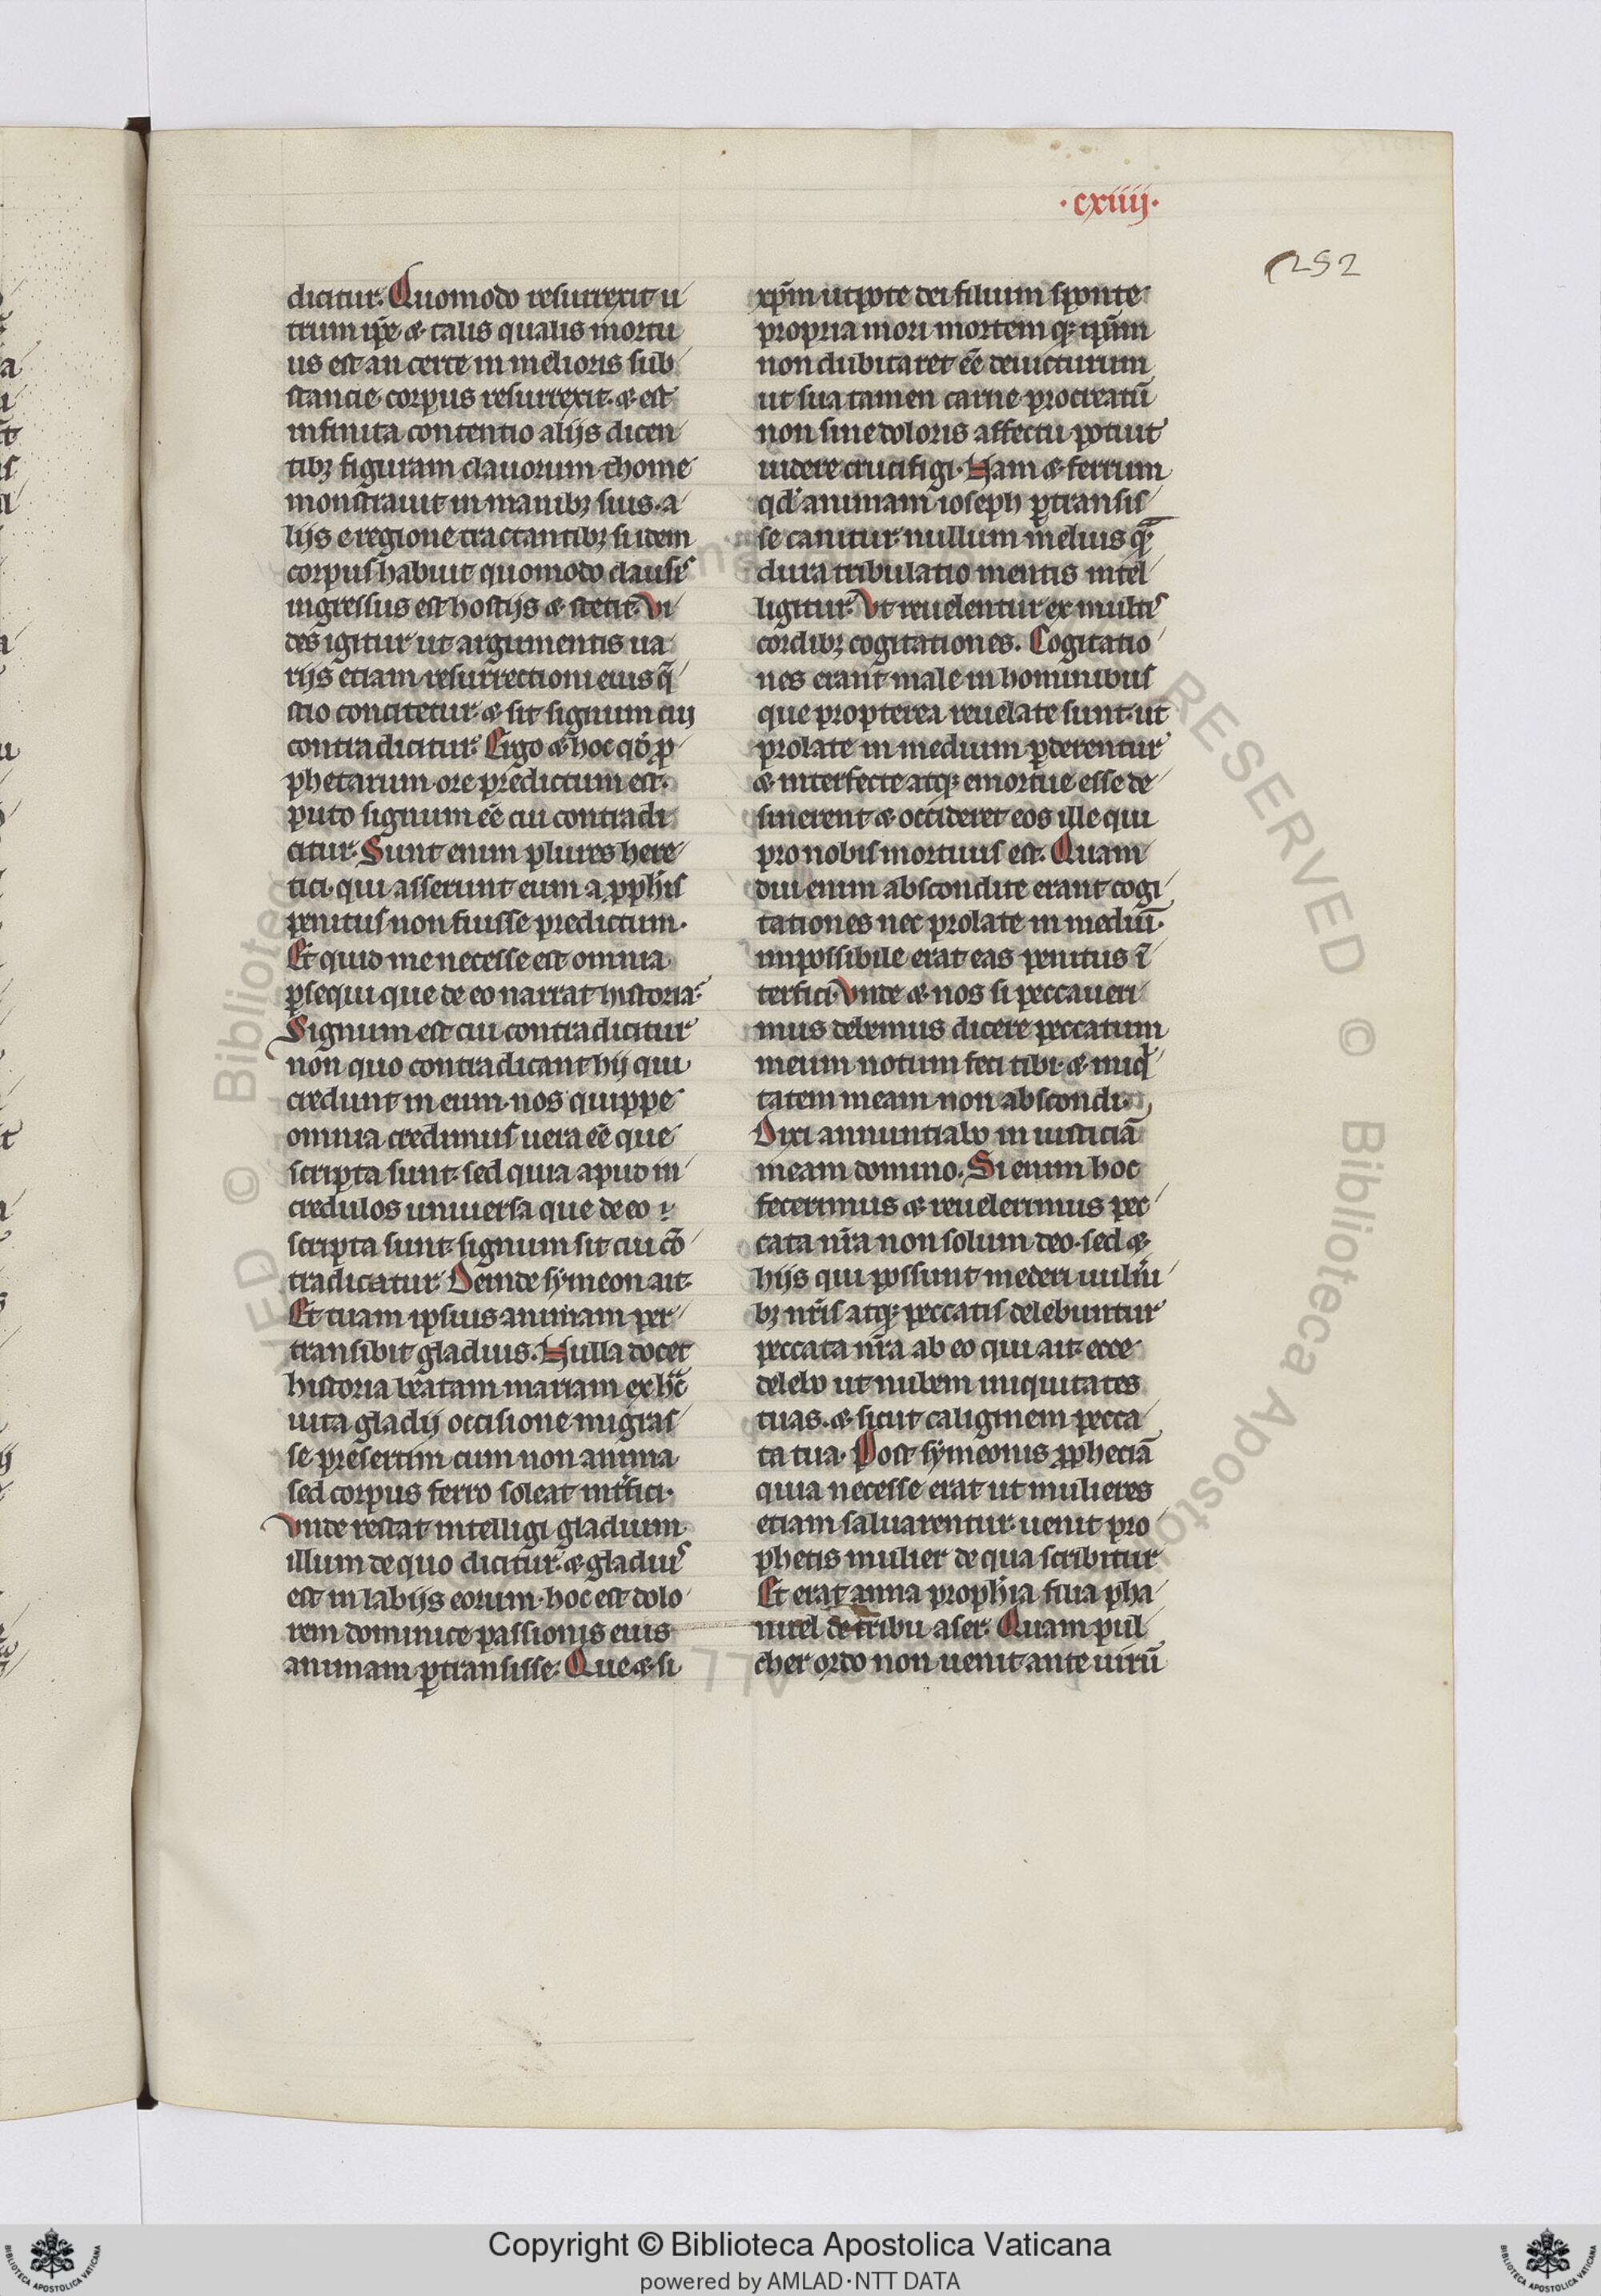 ·cxiiij·
252
dicitur. Quomodo resurrexit u
trum ip̄e & talis qualis mortu
us est an certe in melioris sub
stancie corpus resurrexit. & est
infinita contentio alijs dicen
tibꝫ figuram clauorum thome
monstrauit in manibꝫ suis. a
lijs e regione tractantibꝫ si idem
corpus habuit quomodo clausis
ingressus est hostijs & stetit. Vi
des igitur ut argumentis ua
rijs etiam resurrectioni eius q̄
stio concitetur. & sit signum cuj
contradicitur. Ergo & hoc qd̓ ꝓ
phetarum ore predictum est.
puto signum eē cui contradi
citur. Sunt enim plures here
tici. qui asserunt eum a ꝓph̄is
penitus non fuisse predictum.
Et quid me necesse est omnia
ꝑsequi que de eo narrat historia.
Signum est cui contradicitur
non quo contradicant hij qui
credunt in eum. nos quippe
omnia credimus uera eē que
scripta sunt. sed quia apud in
credulos uniuersa que de eo
scripta sunt. signum sit cui cō
tradicatur. Deinde sẏmeon ait.
Et tuam ipsius animam per
transibit gladius. Nulla docet
historia beatam mariam ex hac
uita gladij occisione migras
se presertim cum non anima
sed corpus ferro soleat int̓fici.
Vnde restat intelligi gladium
illum de quo dicitur. & gladius
est in labijs eorum. hoc est dolo
rem dominice passionis eius
animam ꝑtransisse. Que & si
xp̄m utpote dei filium sponte
propria mori mortem qꝫ ip̄am
non dubitaret eē deuicturum
ut sua tamen carne procreatū
non sine doloris affectu potuit
uidere crucifigi. Nam & ferrum
qd̓ animam ioseph ꝑtransis
se canitur. nullum melius qᷓ
dura tribulatio mentis intel
ligitur. Vt reuelentur ex multis
cordibꝫ cogitationes. Cogitatio
nes erant male in hominibus
que propterea reuelate sunt. ut
prolate in medium ꝑderentur
& interfecte atqꝫ emortue esse de
sinerent & occideret eos ille qui
pro nobis mortuus est. Quam
diu enim abscondite erant cogi
tationes nec prolate in mediū.
impossibile erat eas penitus ī
terfici. Vnde & nos si peccaueri
mus debemus dicere peccatum
meum notum feci tibi. & iniq̓
tatem meam non abscondi.
Dixi annuntiabo in iusticiā
meam domino. Si enim hoc
fecerimus & reuelerimus pec
cata nr̄a non solum deo. sed &
hijs qui possunt mederi uuln̓i
bꝫ nr̄is atqꝫ peccatis delebuntur
peccata nr̄a ab eo qui ait. ecce
delebo ut nubem iniquitates
tuas. & sicut caliginem pecca
ta tua. Post sẏmeonis ꝓphetiā
quia necesse erat ut mulieres
etiam saluarentur. uenit pro
phetis mulier de qua scribitur
Et erat anna proph̄ia filia pha
nuel de tribu aser. Quam pul
cher ordo non uenit ante uirū
Copyright © Biblioteca Apostolica Vaticana
powered by AMLAD·NTT DATA